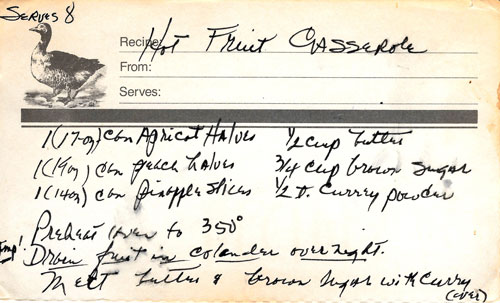 SERVES 8
Recipe: Hot Fruit Casserole
From:
Serves:
1 (17 oz) can Apricot Halves 1/2 cup butter
1 (19 oz) can peach halves 3/4 cup brown sugar
1 (14 oz) can pineapple slices 1/2 t. curry powder
Preheat oven to 350°
Imp! Drain fruit in colander overnight.
Melt butter & brown sugar with curry
(over)